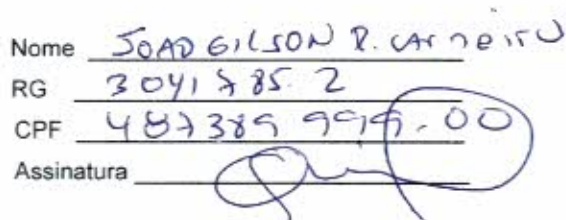 Nome JOAO GILSON R. CARNEIRO
RG 3041785.2
CPF 487389 999-00
Assinatura